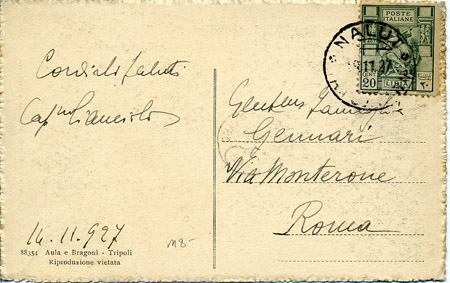 POSTE ITALIANE
NALUT
CENT 20
LIBIA
Cordiali saluti
Cap
Famiglia
Gennari
Via Monterone
Roma
14.11.927
88354 Aula e Bragoni - Tripoli
Riproduzione vietata